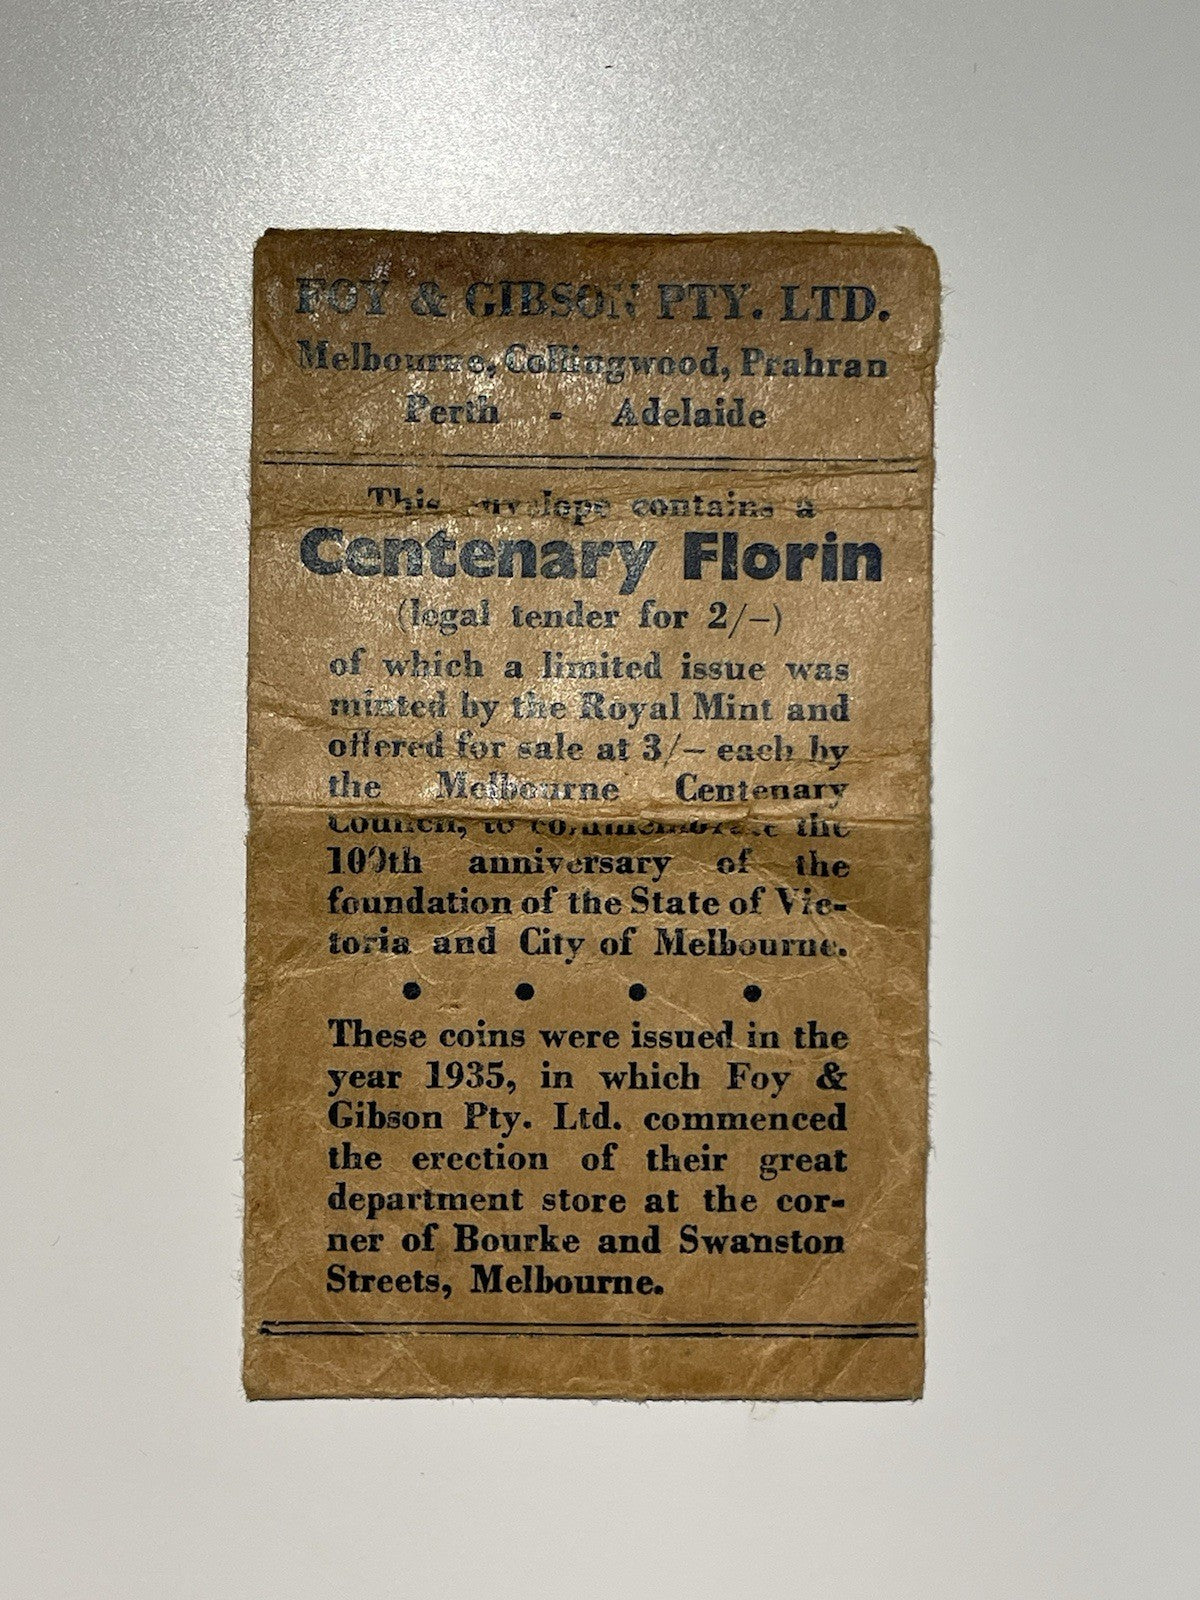 FOY & GIBSON PTY. LTD.
Melbourne, Collingwood, Prahran
Perth - Adelaide
This envelope contains a
Centenary Florin
(legal tender for 2/–)
of which a limited issue was
minted by the Royal Mint and
offered for sale at 3/– each by
the Melbourne Centenary
Council, to commemorate the
100th anniversary of the
foundation of the State of Vic-
toria and City of Melbourne.
These coins were issued in the
year 1935, in which Foy &
Gibson Pty. Ltd. commenced
the erection of their great
department store at the cor-
ner of Bourke and Swanston
Streets, Melbourne.